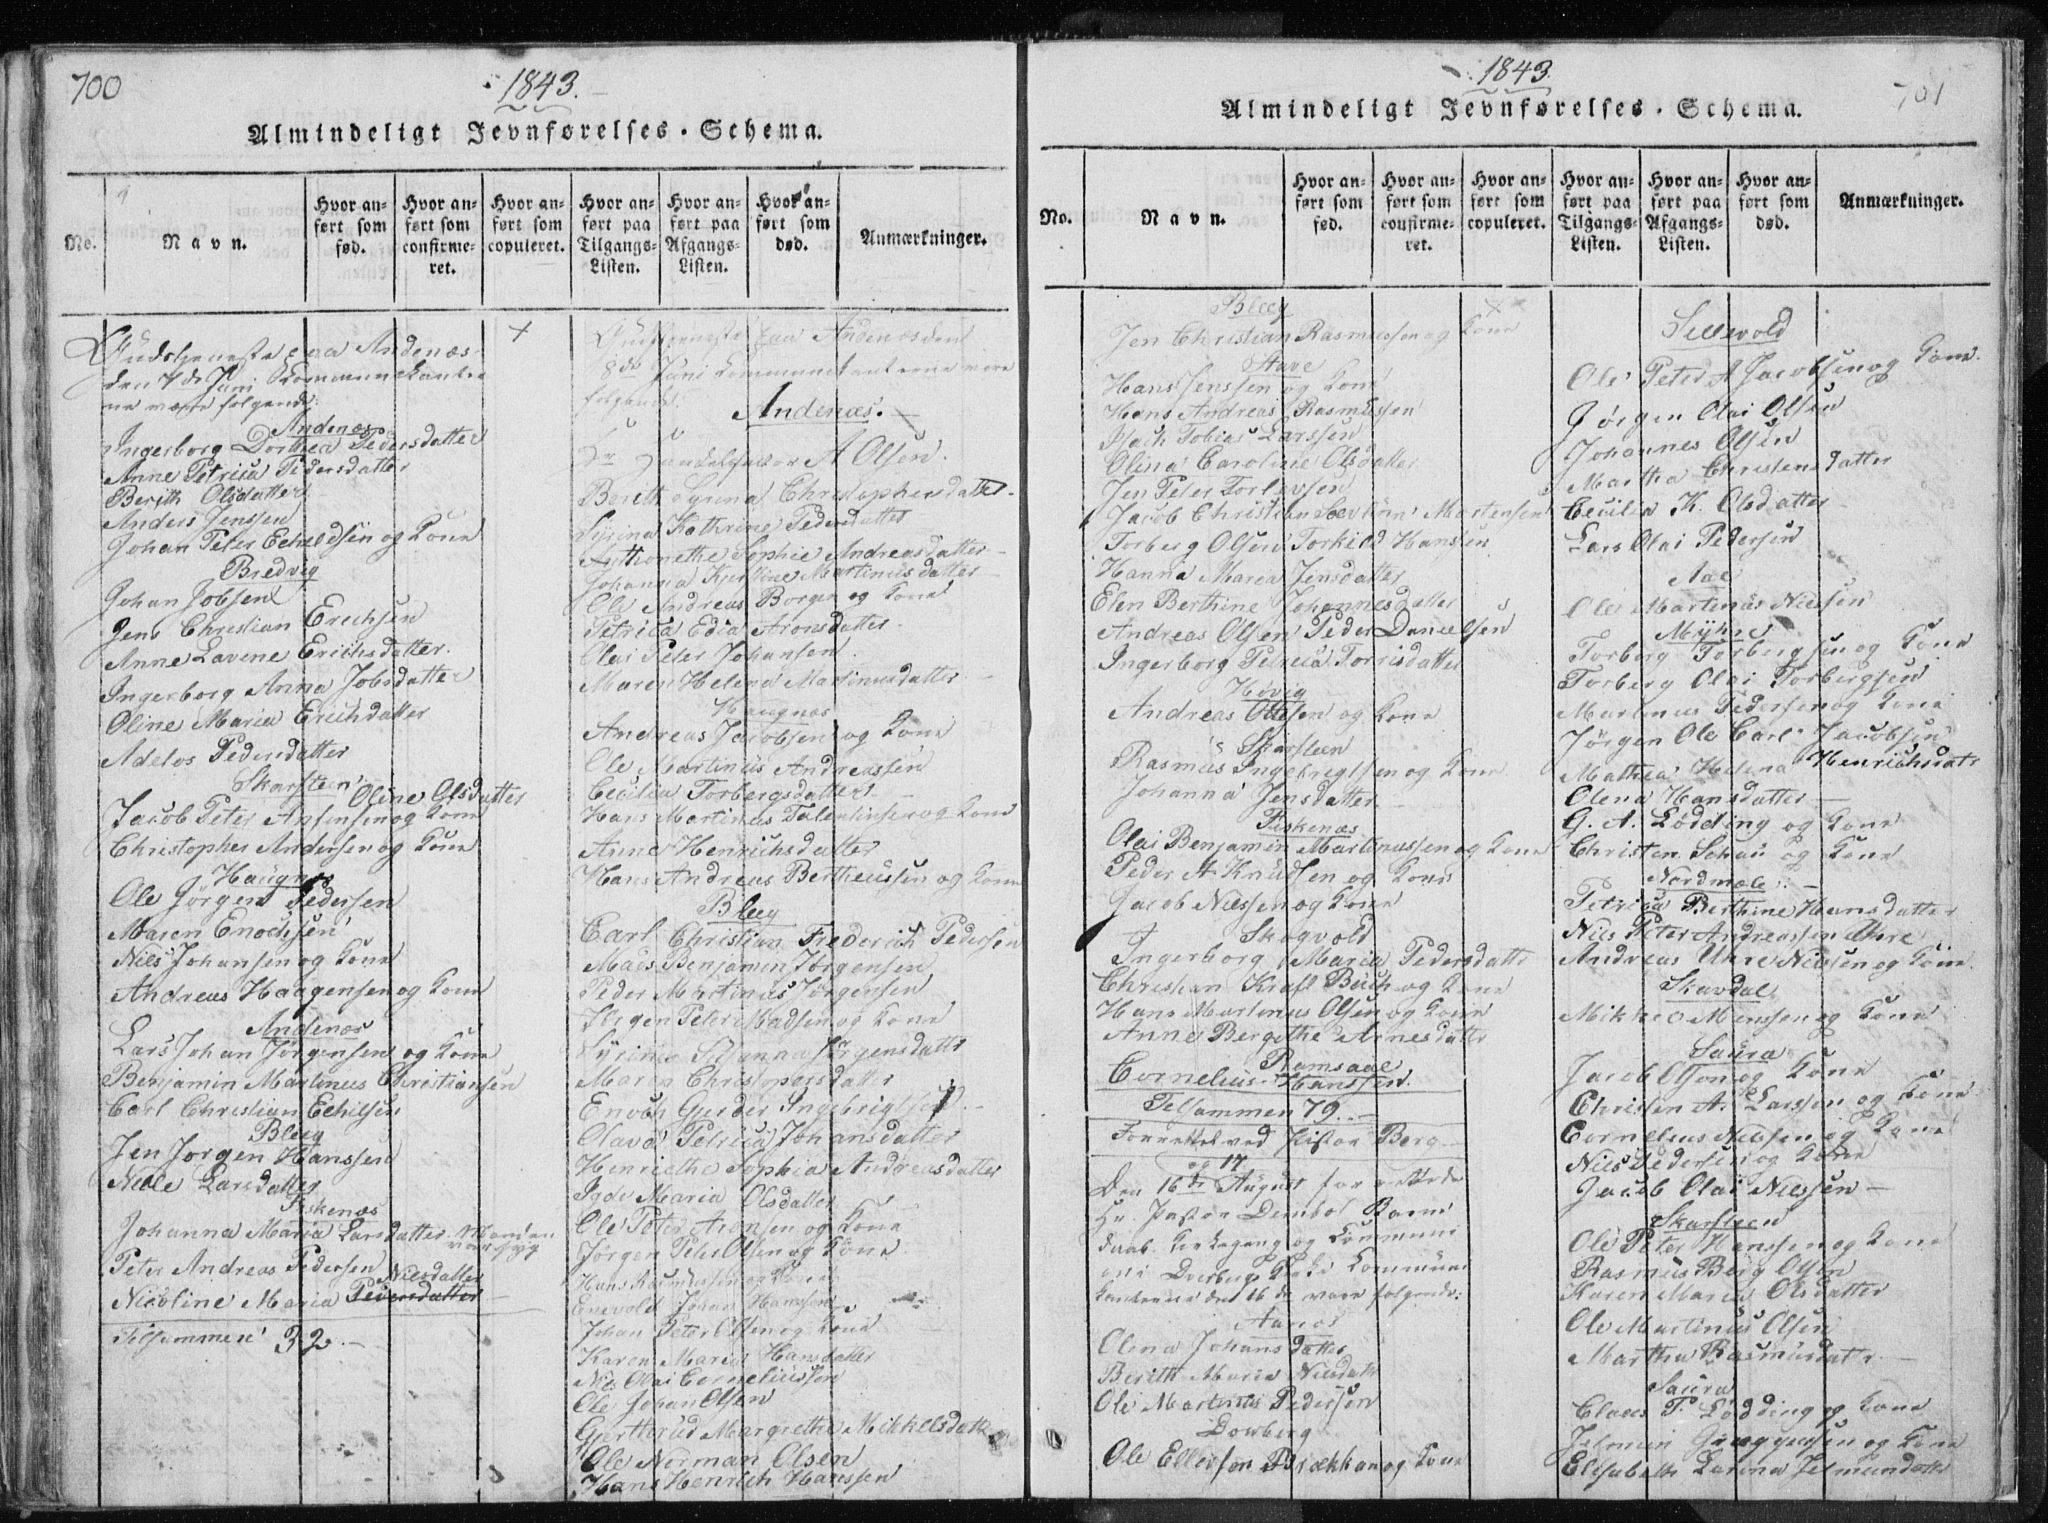 700
1843.
Almindeligt Jevnførelses-Schema.
No.
Navn.
Hvor anført som fød.
Hvor anført som confirmeret.
Hvor anført som copuleret.
Hvor anført paa Tilgangs-Listen.
Hvor anført paa Afgangs-Listen.
Hvor anført som død.
Anmærkninger.
Gudstjeneste paa Andenæs
den 7de Juni Kommunikanter
ne vare følgende:
Andenæs
Ingerborg Dorthea Pedersdatter
Anne Petrica Pedersdatter
Berith Olsdatter
Anders Jenssen
Johan Peter Echeldsen og Kone
Bredvig
Johan Jobsen
Jens Christian Erichsen
Anne Lavene Erichsdatter.
Ingerborg Anna Jobsdatter
Oline Maria Erichdatter
Adelos Pedersdatter
Skarsteen
Oline Olsdatter
Jacob Peter Anfensen og Kone
Christopher Andersen og Kone
Haugnes
Ole Jørgen Pedersen
Maren Enochsen
Niels Johansen og Kone
Andreas Haagensen og Kone
Andenæs
Lars Johan Jørgensen og Kone
Benjamin Martinus Christiansen
Carl Christian Echilsen
Bleeg
Jen Jørgen Hanssen
Nelle Larsdatter
Fiskenæs
Johanna Maria Larsdatter. Manden
var syg
Peter Andreas Pedersen
Nielsdatter
Nicoline Maria Pedersdatter
Tilsammen 32.
Gudstjeneste paa Andenæs den
8de Juni Kommunikanterne vare
følgende.
Andenæs.
Hr A Olsen.
Berith Syrina Christophersdatter.
Syrina Kathrine Pedersdatter
Anthonethe Sophie Andreasdatter
Johanna Kjerstine Martinusdatter
Ole Andreas Borgen og Kone
Petrica Edia Aronsdatter.
Olai Peter Johansen.
Maren Helena Martinusdatter.
Haugnæs
Andreas Jacobsen og Kone
Ole Martinus Andreassen
Cecilia Torbergsdatter
Hans Martinus Falentinsen og Kone
Anne Henrichsdatter
Hans Andreas Bertheussen og Kone
Bleeg
Carl Christian Frederich Pedersen
Mads Benjamin Jørgensen
Peder Martinus Jørgensen
Jørgen Peter Madsen og Kone
Syrina Susanna Jørgensdatter
Maren Christophersdatter
Enoch Gjerder Ingebrigtsen
Olava Petrica Johansdatter
Henriethe Sophia Andreasdatter
Maria Olsdatter
Ole Peter Aronsen og Kone
Jørgen Peter Olsen og Kone
Hans Rasmussen og Kone
Enevold Johan Hanssen
Johan Peter Olsen og Kone
Karen Maria Hansdatter
Nils Olai Corneliussen
Ole Johan Olsen
Gjerthrud Margrethe Mikkelsdatter
Ole Norman Olsen
Hans Henrich Hanssen
1843.
701
Almindeligt Jevnførelses-Schema.
No.
Navn.
Hvor anført som fød.
Hvor anført som confirmeret.
Hvor anført som copuleret.
Hvor anført paa Tilgangs-Listen.
Hvor anført paa Afgangs-Listen.
Hvor anført som død.
Anmærkninger.
Bleeg
Jen Christian Rasmussen og Kone
Stave
Hans Jenssen og Kone
Hans Andreas Rasmussen
Isach Tobias Larssen
Olina Caroline Olsdatter
Jen Peter Torlevsen
Jacob Christian Martensen
Torberg Olsen Torkild Hansen
Hanna Maria Jensdatter
Elen Berthine Johannesdatter
Andreas Olsen Peder Danielsen
Ingerborg Petrica Torrisdatter
Høvig
Andreas Ottesen og Kone
Skarsteen
Rasmus Ingebrigtsen og Kone
Johanna Jensdatter
Fiskenæs
Olai Benjamin Martinussen og Kone
Peder A Knudsen og Kone
Jacob Nielsen og Kone
Skogvold
Ingerborg Maria Pedersdatter
Christian Kraft Buch og Kone
Hans Martinus Olsen og Kone
Anne Bergithe Arnesdatter
Ramsaae
Cornelius Hanssen.
Tilsammen 79.
Forrettet ved Pastor Berg
og 17
Den 16de August forrettede
Hr. Pastor Barne
daab Kirkegang og Kommuni
on i Dverberg Kirke Kommuni
kanterne den 16de vare følgende:
Aanæs
Olena Johansdatter
Berith Maria Nielsdatter
Ole Martinus Pedersen
Dowberg
Ole Ellevsen Brækkan og Kone
Sellevold
Ole Peter A Jacobsen og Kone.
Jørgen Olai Olsen
Johannes Olsen
Martha Christensdatter
Cecilia K. Olsdatter
Lars Olai Pedersen
Aae
Ole Martinus Nielsen
Myhre
Torberg Torbergsen og Kone
Torberg Olai Torbergsen
Martinus Pedersen og Kone
Jørgen Ole Carl Jacobsen
Mathea Helena Henrichsdatter
Olena Hansdatter
G. A. Lødding og Kone
Christen Schau og Kone
Nordmæle
Petrica Berthine Hansdatter
Niels Peter Andreassen Uhre
Andreas Uhre Nielsen og Kone.
Skavdal
Mikkel Monssen og Kone
Saura
Jacob Olsen og Kone
Christen A. Larssen og Kone
Cornelius Nielsen og Kone
Niels Pedersen og Kone
Jacob Olai Nielssen
Skarsteen
Ole Peter Hanssen og Kone
Rasmus Berg Olsen
Karen Maria Olsdatter
Ole Martinus Olsen
Martha Rasmusdatter.
Saura
Claus P. Lødding og Kone
og Kone
Elisabeth Larina